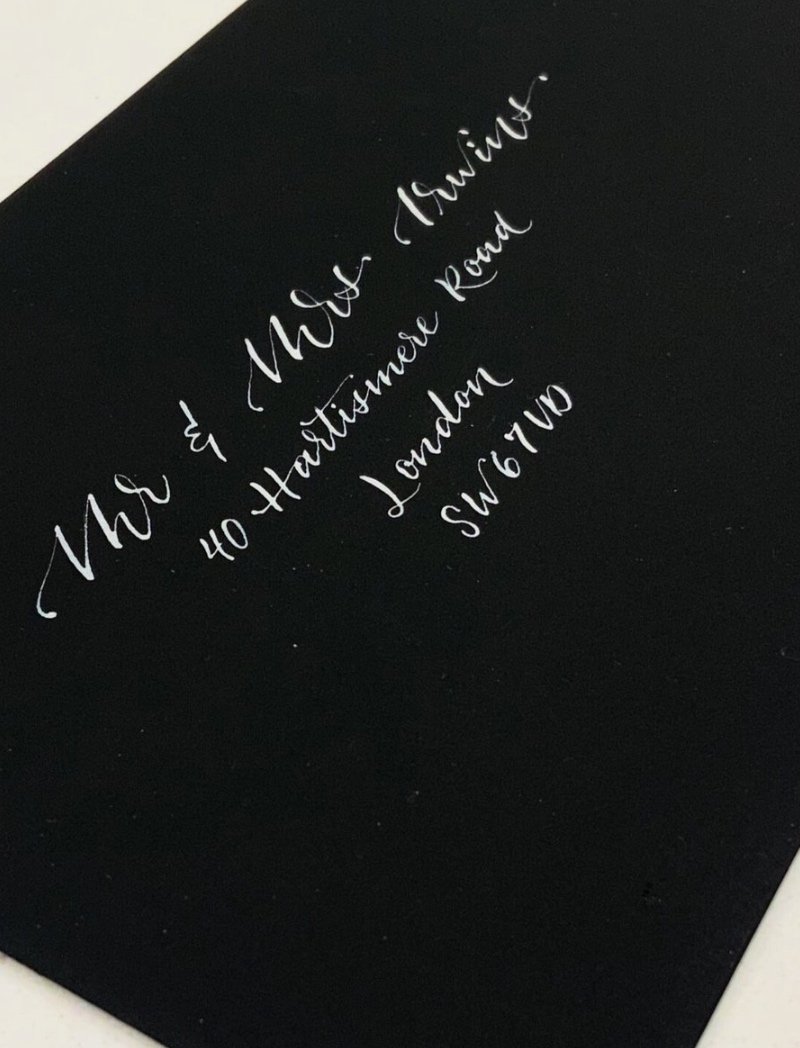 Mr & Mrs Irwins
40 Hartismere Road
London
SW6 7UD